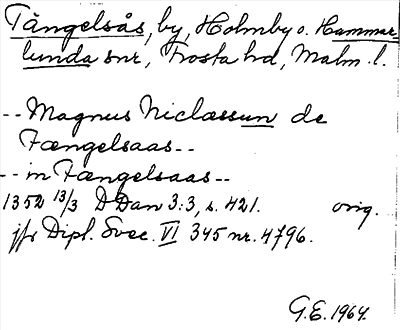 Tängelsås, by, Holmby o. Hammar
lunda snr, Frosta hd, Malm. l.
-- Magnus Niclæssun de
Fængelsaas --
-- in Fængelsaas --
1352 13/3 DDan 3:3, s. 421. orig.
jfr Dipl. Svec. VI 345 nr. 4796.
G.E. 1964.